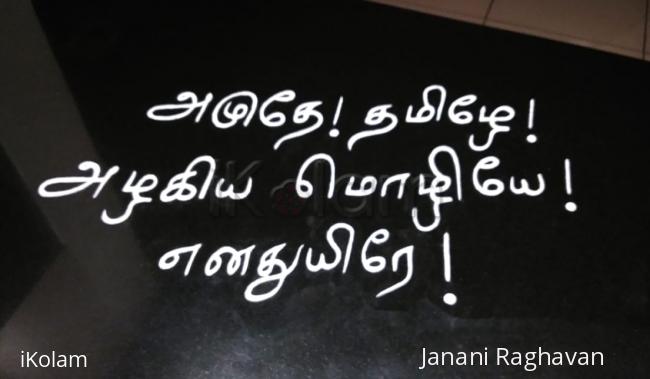 அமுதே! தமிழே!
அழகிய மொழியே!
எனதுயிரே!
iKolam
iKolam
Janani Raghavan